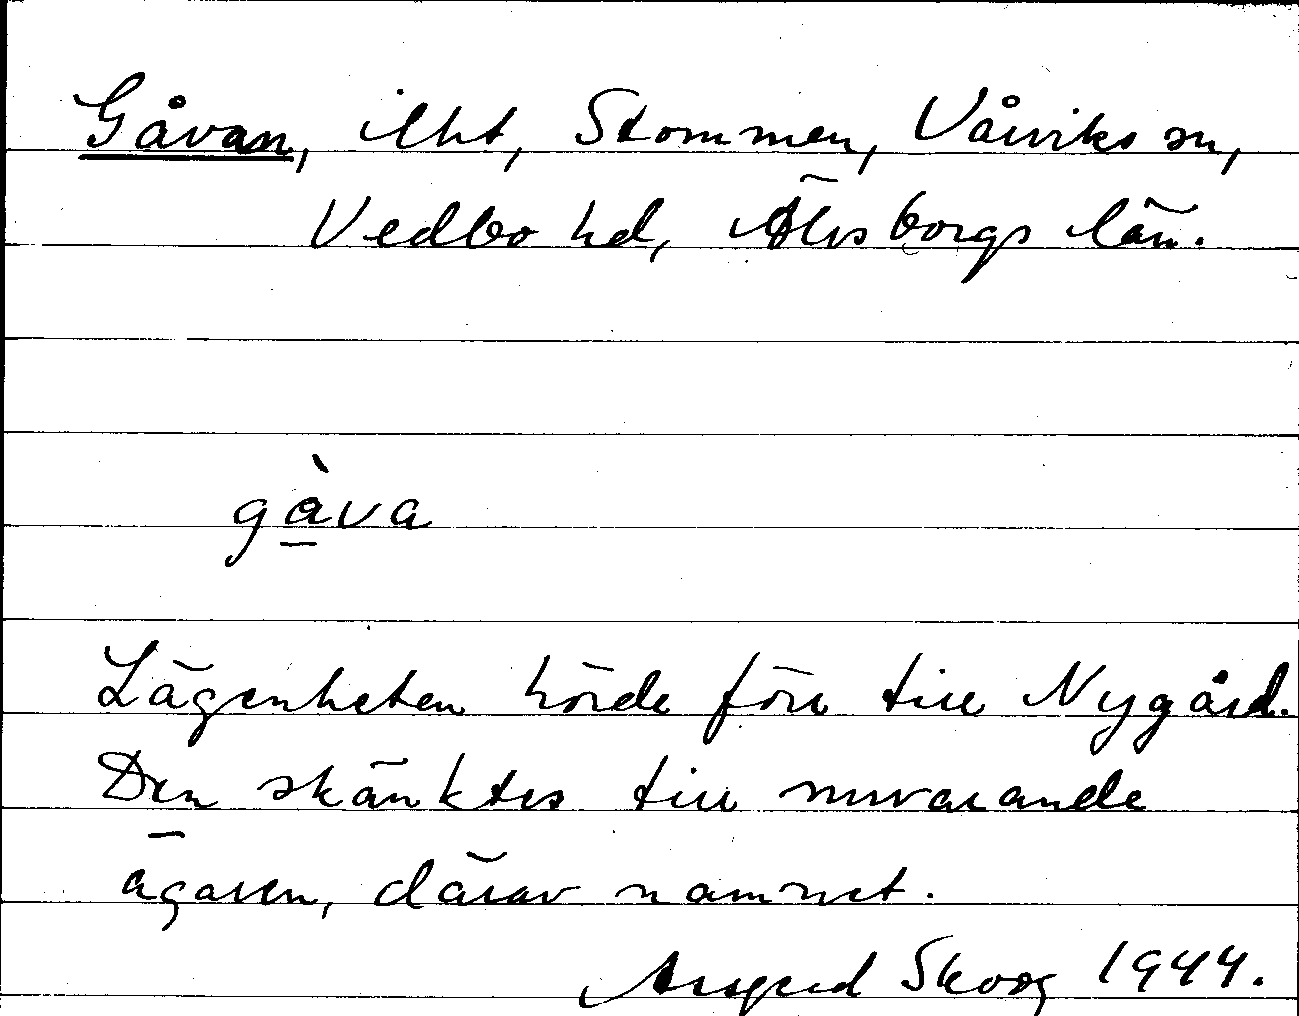 Gåvan, lht, Stommen, Vårviks sn,
Vedbo hd, Älvsborgs län.
gàva
Lägenheten hörde förr till Nygård.
Den skänktes till nuvarande
ägaren, därav namnet.
Skoog 1944.